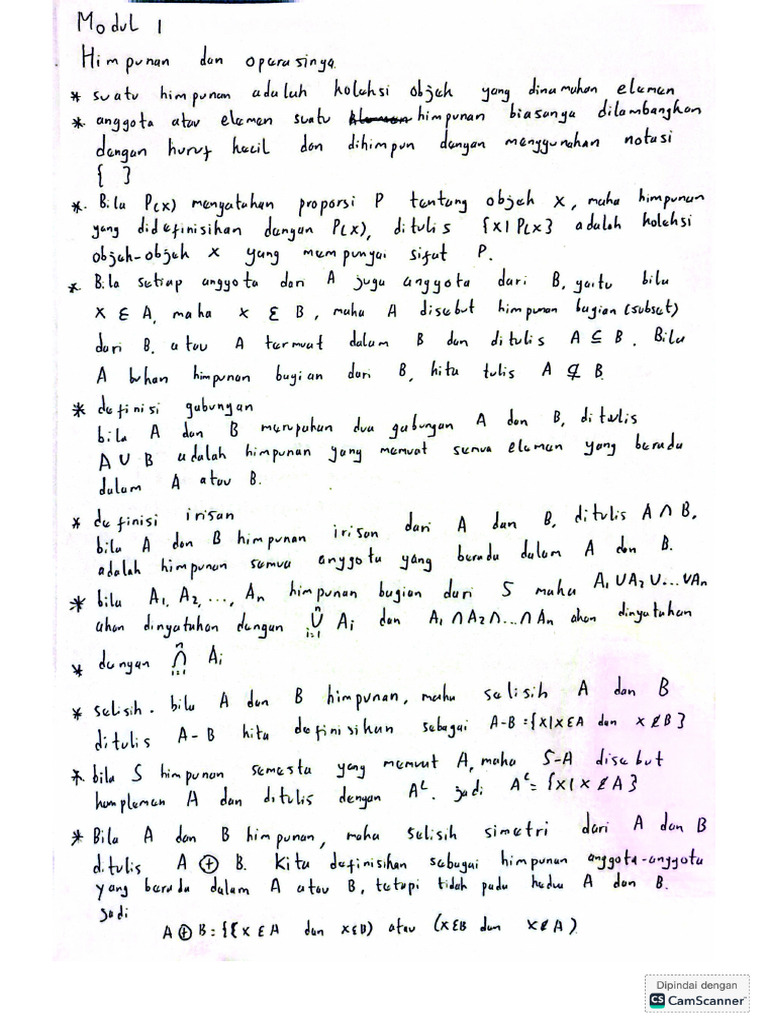 Modul 1
Himpunan dan operasinya.
* suatu himpunan adalah koleksi objek yang dinamakan elemen
* anggota atau elemen suatu himpunan biasanya dilambangkan
dengan huruf kecil dan dihimpun dengan menggunakan notasi
{ }
* Bila P(x) menyatakan proporsi P tentang objek x, maka himpunan
yang didefinisikan dengan P(x), ditulis {x|P(x} adalah koleksi
objek-objek x yang mempunyai sifat P.
* Bila setiap anggota dari A juga anggota dari B, yaitu bila
x ∈ A, maka x ∈ B, maka A disebut himpunan bagian (subset)
dari B. atau A termuat dalam B dan ditulis A ⊆ B. Bila
A bukan himpunan bagian dari B, kita tulis A ⊈ B.
* definisi gabungan
bila A dan B merupakan dua gabungan A dan B, ditulis
A ∪ B adalah himpunan yang memuat semua elemen yang berada
dalam A atau B.
* definisi irisan
bila A dan B himpunan irisan dari A dan B, ditulis A ∩ B,
adalah himpunan semua anggota yang berada dalam A dan B.
* bila A₁, A₂, ..., Aₙ himpunan bagian dari S maka A₁ ∪ A₂ ∪ ... ∪ Aₙ
akan dinyatakan dengan ⋃ⁿᵢ₌₁ Aᵢ dan A₁ ∩ A₂ ∩ ... ∩ Aₙ akan dinyatakan
* dengan ⋂ⁿᵢ₌₁ Aᵢ
* selisih. bila A dan B himpunan, maka selisih A dan B
ditulis A - B kita definisikan sebagai A-B = {x|x∈A dan x∉B}
* bila S himpunan semesta yang memuat A, maka S-A disebut
komplemen A dan ditulis dengan Aᶜ. jadi Aᶜ = {x|x∉A}
* Bila A dan B himpunan, maka selisih simetri dari A dan B
ditulis A ⊕ B. Kita definisikan sebagai himpunan anggota-anggota
yang berada dalam A atau B, tetapi tidak pada kedua A dan B.
Jadi
A ⊕ B = {(x ∈ A dan x∉B) atau (x∈B dan x∉A)
Dipindai dengan
CS CamScanner